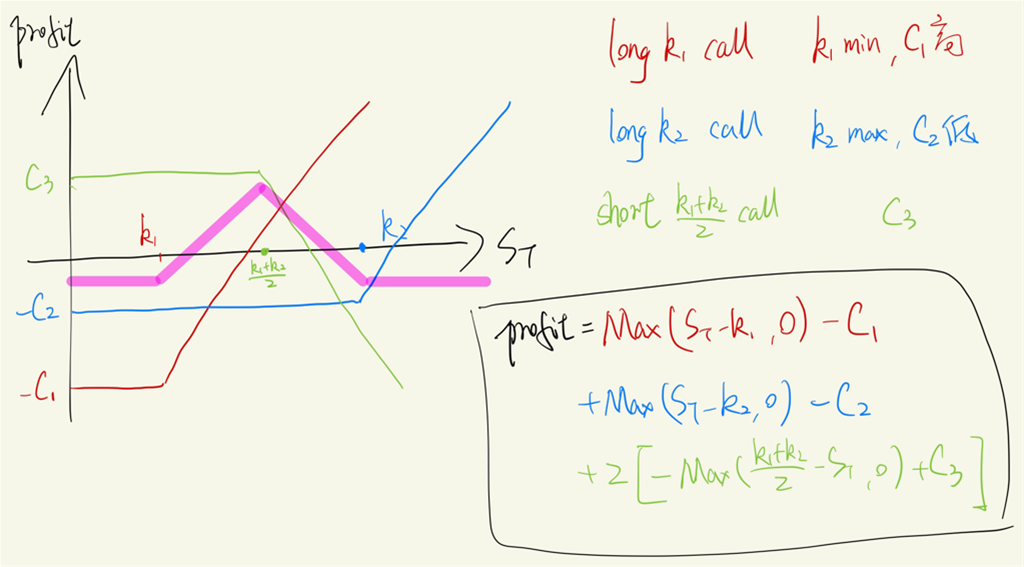 profit
C₃
k₁
k₂
S_T
(k₁+k₂)/2
-C₂
-C₁
long k₁ call k₁ min, C₁高
long k₂ call k₂ max, C₂低
short (k₁+k₂)/2 call C₃
profit = Max(S_T-k₁,0) -C₁
+Max(S_T-k₂,0) -C₂
+2[-Max((k₁+k₂)/2-S_T,0)+C₃]